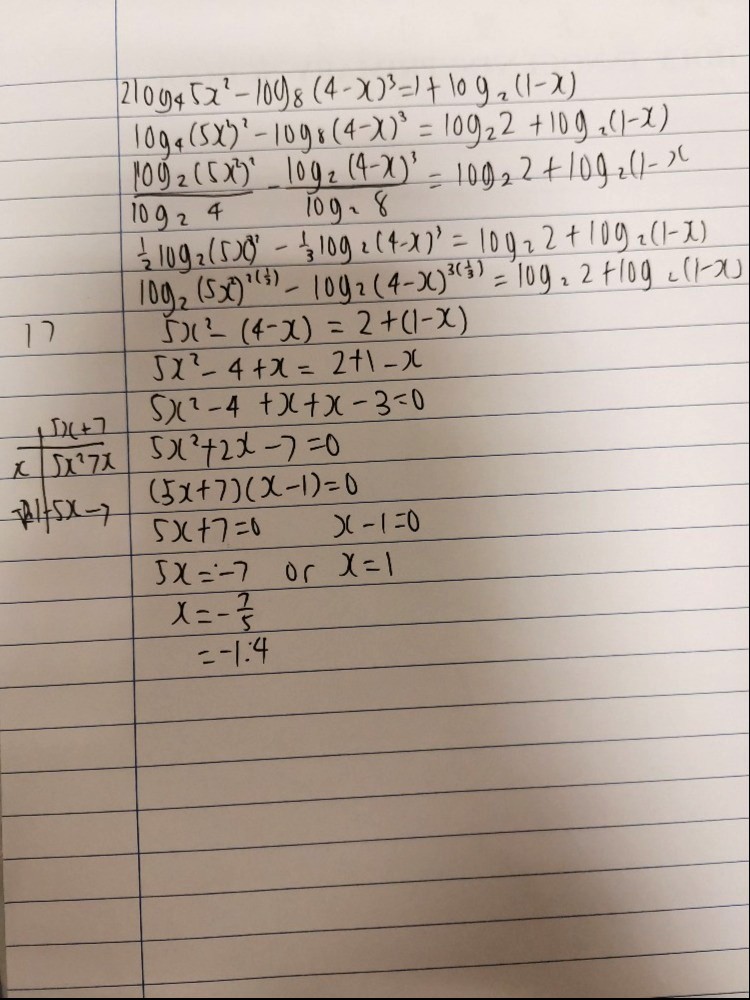 2log₄5x² - log₈(4-x)³ = 1 + log₂(1-x)
log₄(5x²)² - log₈(4-x)³ = log₂2 + log₂(1-x)
log₂(5x²)²/log₂4 - log₂(4-x)³/log₂8 = log₂2 + log₂(1-x
½log₂(5x²)² - ⅓log₂(4-x)³ = log₂2 + log₂(1-x)
log₂(5x²)^2(½) - log₂(4-x)^3(⅓) = log₂2 + log₂(1-x)
17
5x² - (4-x) = 2+(1-x)
5x² - 4 + x = 2+1-x
5x² - 4 + x + x - 3 = 0
5x+7
5x² + 2x - 7 = 0
x 5x² 7x
(5x+7)(x-1)=0
-5x -7
5x+7=0 x-1=0
5x=-7 or x=1
x=-7/5
=-1.4